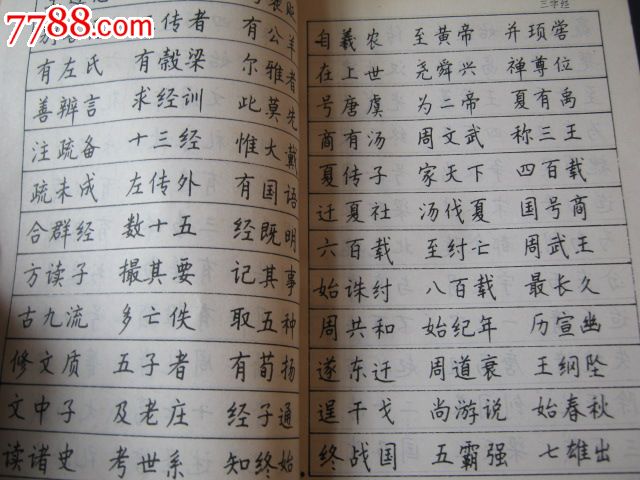 7788.com
传者 有公羊
有左氏 有穀梁 尔雅者
善辨言 求经训 此莫先
注疏备 十三经 惟大戴
疏未成 左传外 有国语
合群经 数十五 经既明
方读子 撮其要 记其事
古九流 多亡佚 取五种
修文质 五子者 有荀扬
文中子 及老庄 经子通
读诸史 考世系 知终始
三字经
自羲农 至黄帝 并顼喾
在上世 尧舜兴 禅尊位
号唐虞 为二帝 夏有禹
商有汤 周文武 称三王
夏传子 家天下 四百载
迁夏社 汤伐夏 国号商
六百载 至纣亡 周武王
始诛纣 八百载 最长久
周共和 始纪年 历宣幽
遂东迁 周道衰 王纲坠
逞干戈 尚游说 始春秋
终战国 五霸强 七雄出